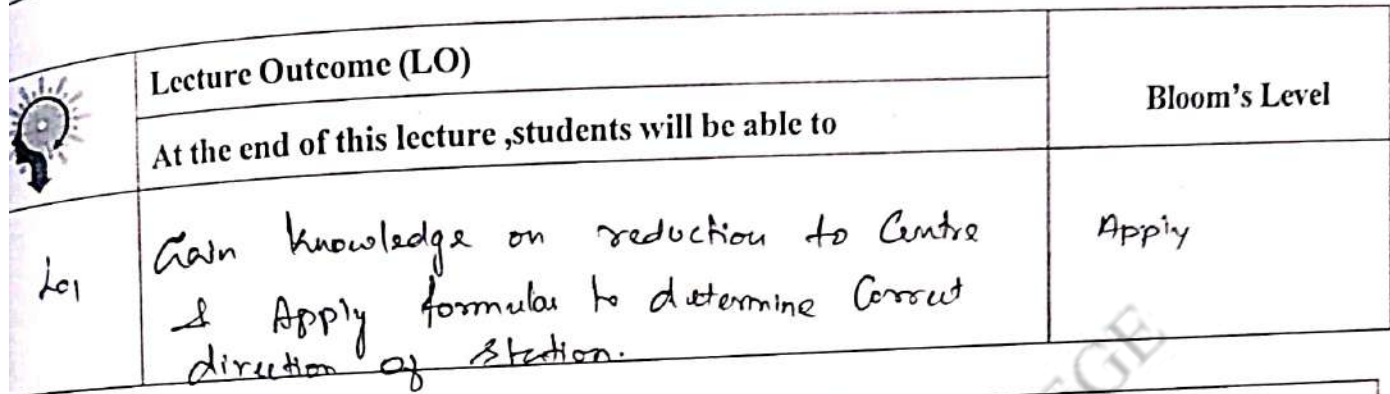 Lecture Outcome (LO)
Bloom's Level
At the end of this lecture ,students will be able to
LO1
Gain knowledge on reduction to Centre
Apply
& Apply formulas to determine Correct
direction of Station.
GE